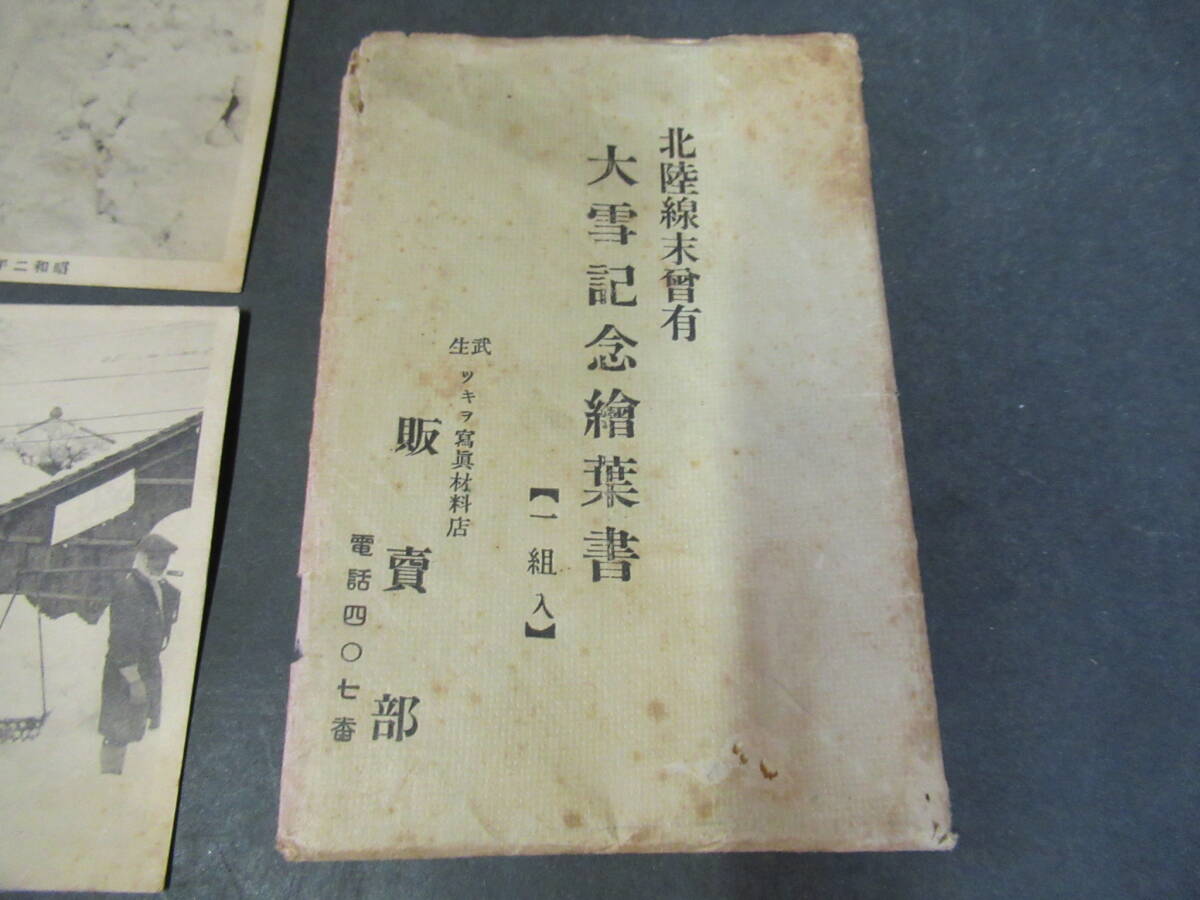 北陸線末曾有
大雪記念繪葉書
【一組入】
武生
ツキヲ寫眞材料店
販賣部
電話四〇七番
昭和二年